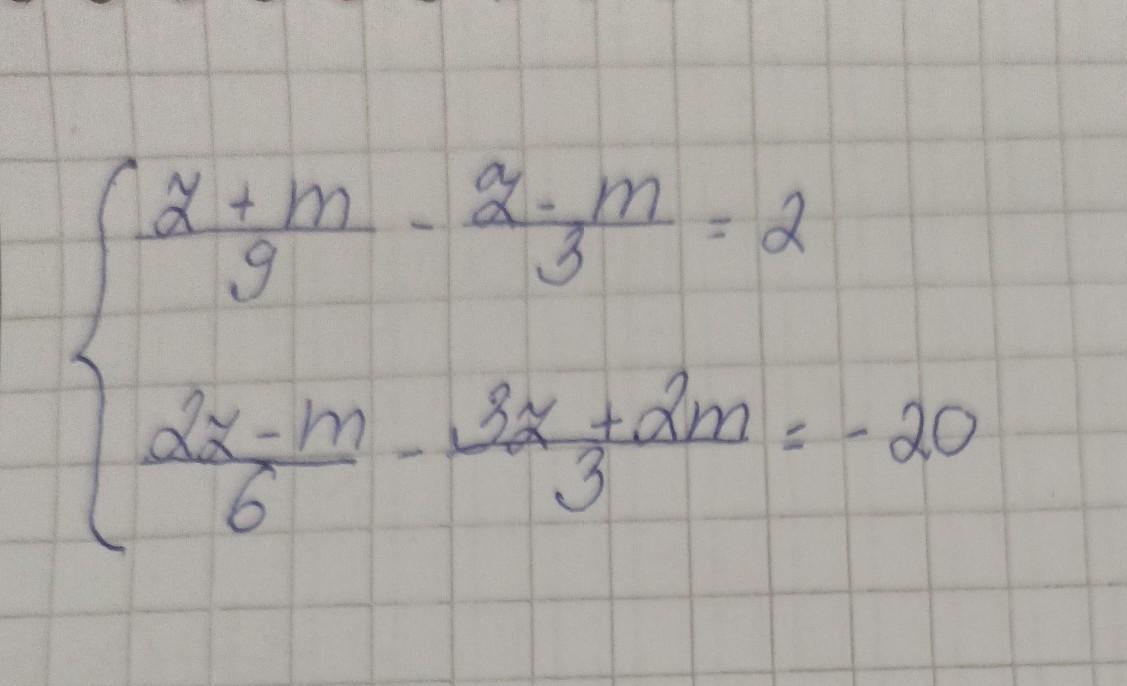 { (z + m)/9 - (z - m)/3 = 2
(2z - m)/6 - (3z + 2m)/3 = - 20